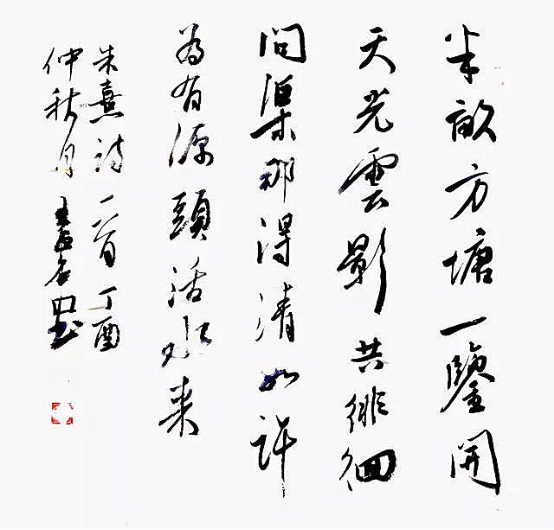 半畝方塘一鑒開
天光雲影共徘徊
問渠那得清如許
為有源頭活水來
朱熹詩一首丁酉
仲秋月